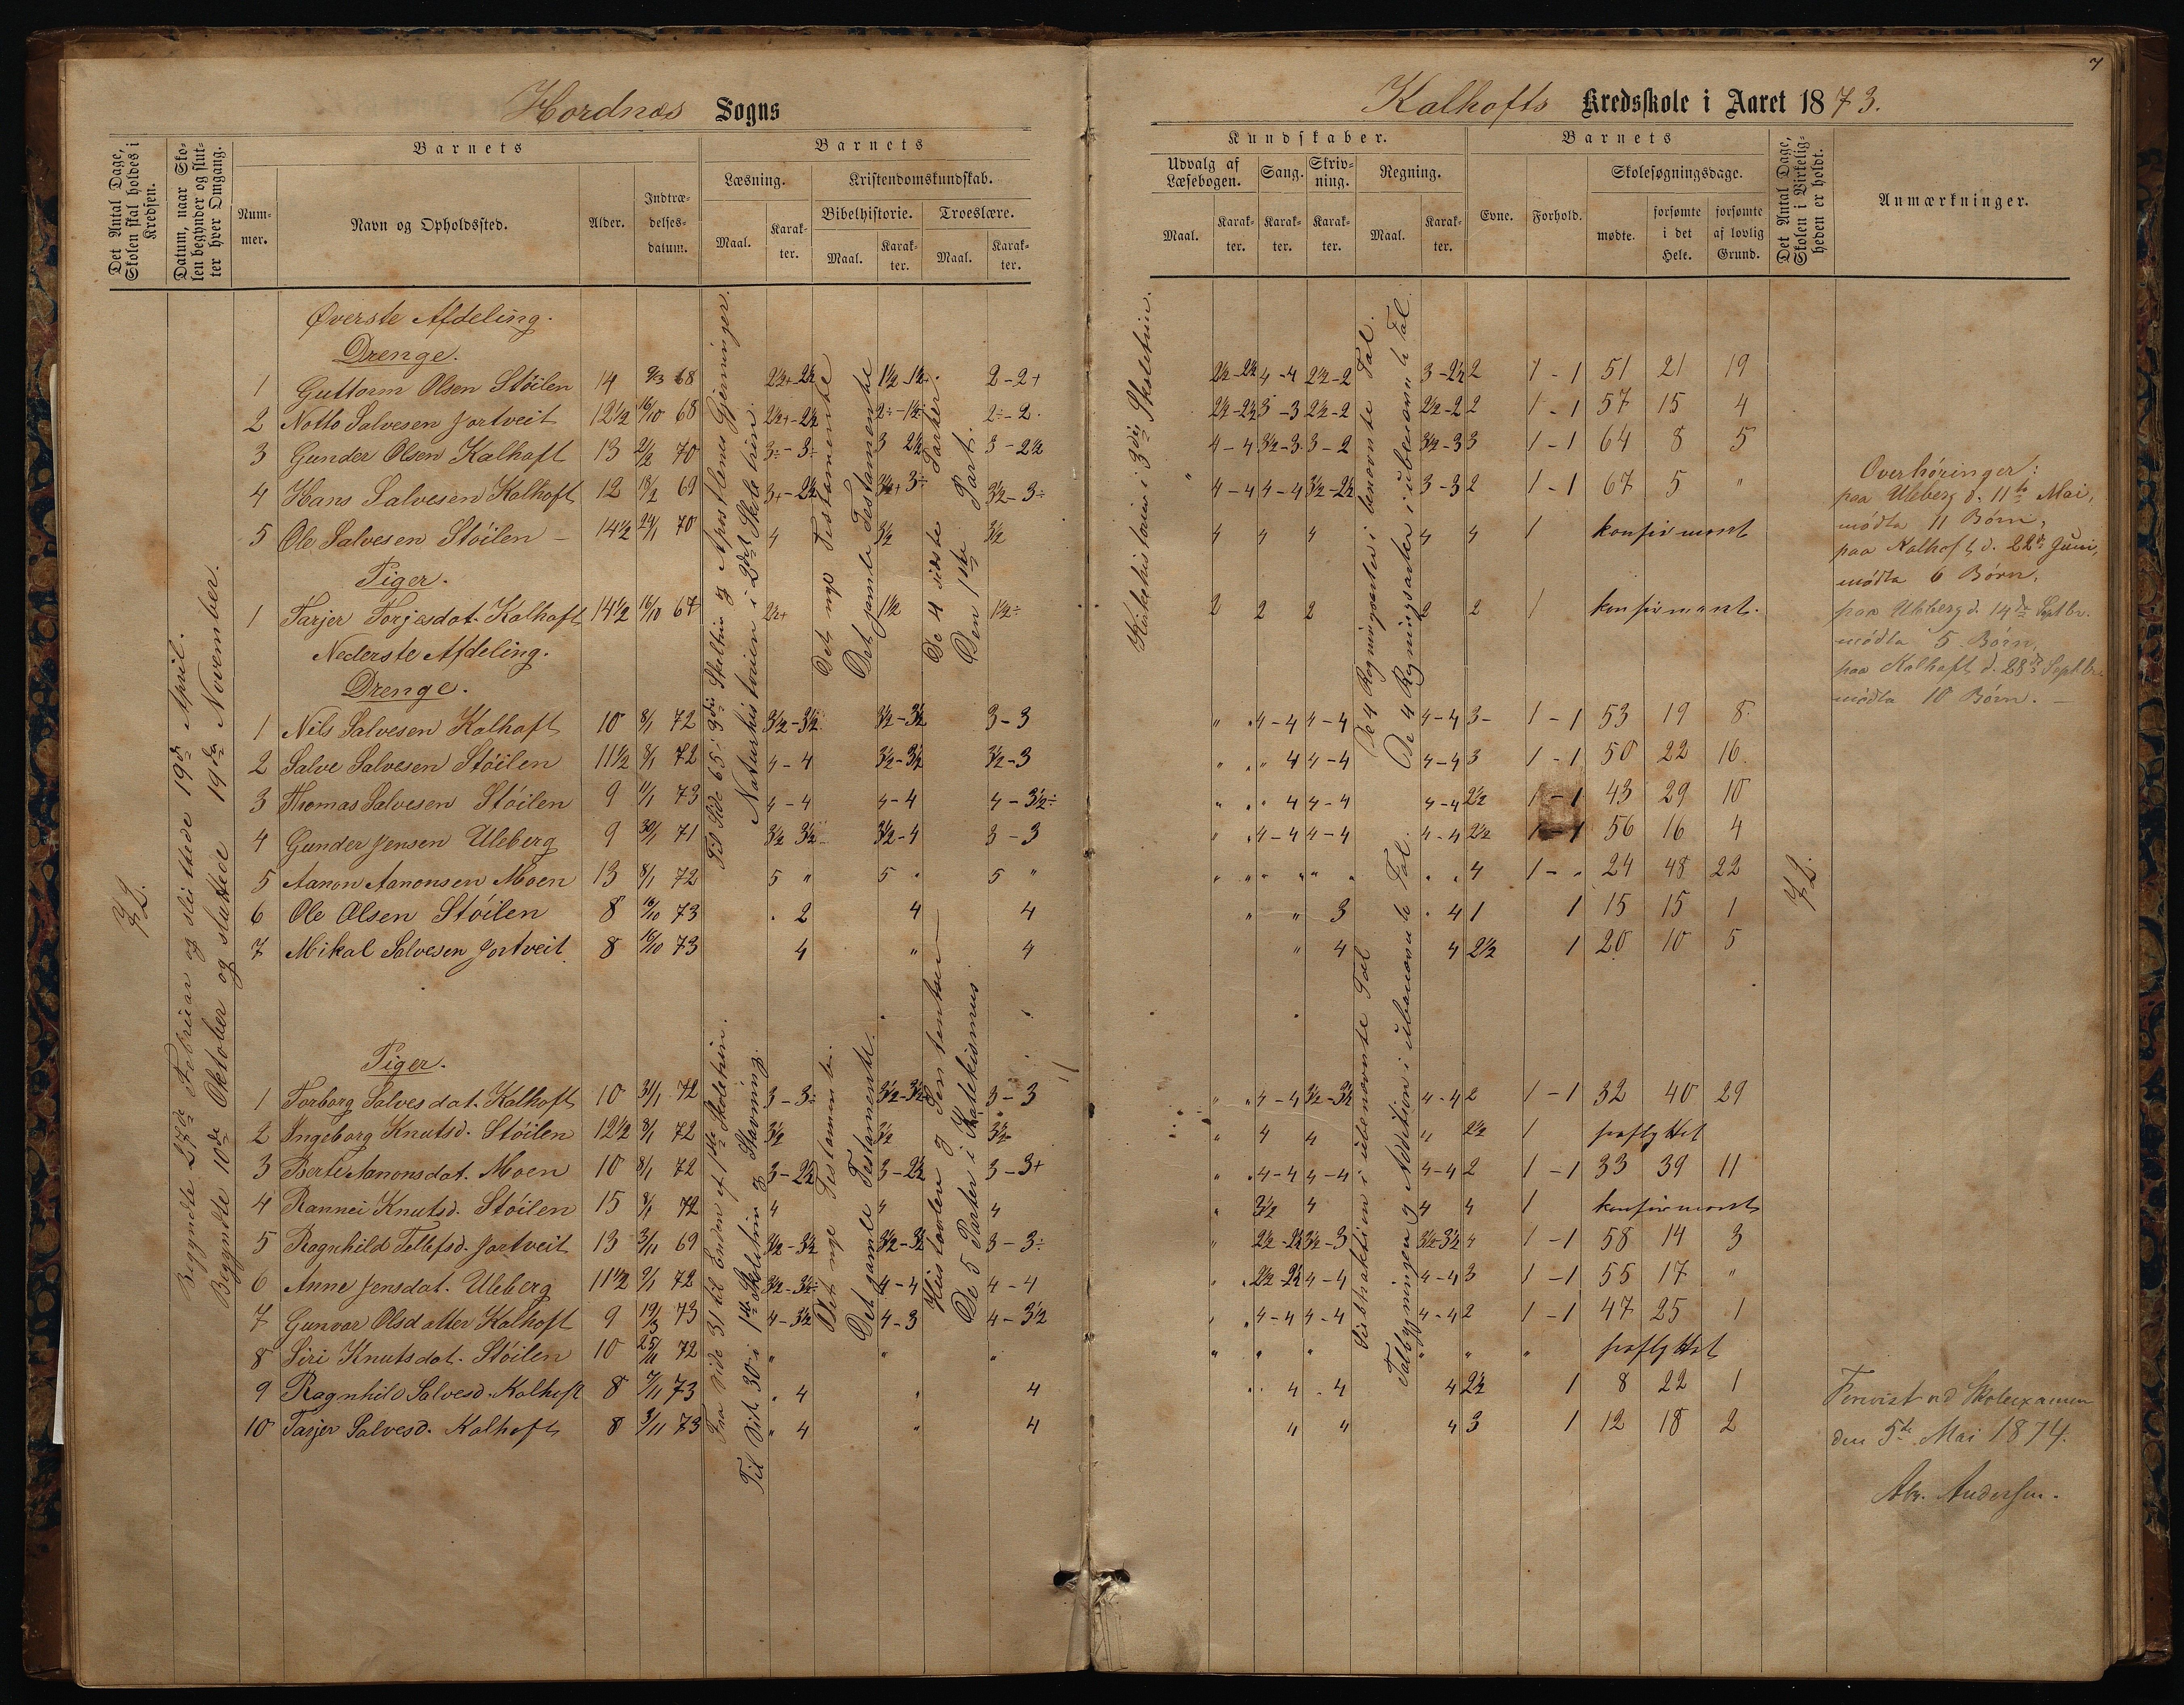 7
Hordnæs Sogns
Kalhofts Kredsskole i Aaret 1873.
Det Antal Dage, Skolen skal holdes i Kredsen.
Datum, naar Skolen begynder og slutter hver Omgang.
Barnets
Nummer.
Navn og Opholdssted.
Alder.
Indtrædelsesdatum.
Barnets
Læsning.
Maal.
Karakter.
Kristendomskundskab.
Bibelhistorie.
Maal.
Karakter.
Troeslære.
Maal.
Karakter.
Kundskaber.
Udvalg af Læsebogen.
Maal.
Karakter.
Sang.
Karakter.
Skrivning.
Karakter.
Regning.
Maal.
Karakter.
Barnets
Evne.
Forhold.
Skolesøgningsdage.
mødte.
forsømte i det Hele.
forsømte af lovlig Grund.
Det Antal Dage, Skolen i Virkeligheden er holdt.
Anmærkninger.
72.
Begyndte 27de Februar og sluttede 19de April.
Begyndte 10de Oktober og sluttede 19de November.
Øverste Afdeling.
Drenge.
1 Guttorm Olsen Stöilen 14 9/3 68 2½+-2½ 1½-1½ 2-2+ 2½-2½ 4-4 2½-2 3-2½ 2 1-1 51 21 19
2 Notto Salvesen Jortveit 12½ 16/10 68 2½+-2½ 2÷-1½ 2÷-2 2½-2½ 3-3 2½-2 2½-2 2 1-1 57 15 4
3 Gunder Olsen Kalhoft 13 2/2 70 3÷-3÷ 3 2½ 3-2½ 4-4 3½-3 3-2 3½-3 3 1-1 64 8 5
4 Hans Salvesen Kalhoft 12 18/2 69 3+-2½ 3½+3÷ 3½-3÷ 4-4 4-4 3½-2½ 3-3 2 1-1 67 5 "
5 Ole Salvesen Stöilen 14½ 24/1 70 4 3½ 3½ 4 4 4 4 4 1 konfirmeret
Piger.
1 Tarjer Torjesdat. Kalhoft 14½ 16/10 67 2½+ 1½ 1½÷ 2 2 2 2 2 1 konfirmeret.
Nederste Afdeling.
Drenge.
1 Nils Salvesen Kalhoft 10 8/1 72 3½-3½ 3½-3½ 3-3 " 4-4 4-4 4-4 3- 1-1 53 19 8
2 Salve Salvesen Stöilen 11½ 8/1 72 4-4 3½-3½ 3½-3 " " 4 4-4 4-4 3 1-1 50 22 16
3 Thomas Salvesen Stöilen 9 11/1 73 4-4 4-4 4-3½÷ " " 4 4-4 4-4 2½ 1-1 43 29 10
4 Gunder Jensen Uleberg 9 30/1 71 3½ 3½ 3½-4 3-3 " 4-4 4-4 4-4 2½ 1-1 56 16 4
5 Aanon Aanonsen Moen 13 8/1 72 5 " 5 " 5 " " " " " " 4 1-" 24 48 22
6 Ole Olsen Stöilen 8 16/10 73 2 4 4 " " 3 4 1 1 15 15 1
7 Mikal Salvesen Jortveit 8 16/10 73 4 " 4 " 4 4 2½ 1 20 10 5
Piger.
1 Torborg Salvesdat. Kalhoft 10 31/1 72 3-3÷ 3½-3½ 3-3 " 4-4 3½-3½ 4-4 2 1-1 32 40 29
2 Ingeborg Knutsd. Stöilen 12½ 8/1 72 3½ 3½ 3½ " 4 4 4 2½ 1 fraflyttet
3 Berte Aanonsdat. Moen 10 8/1 72 3-2½ 3-2½ 3-3+ " 4-4 4-4 4-4 2 1-1 33 39 11
4 Rannei Knutsd. Stöilen 15 8/1 72 4 4 4 " 3½ 4 4 4 1 konfirmeret
5 Ragnhild Tellefsd. Jortveit 13 3/11 69 3½-3½ 3½-3½ 3-3÷ " 2½-2½ 3½-3 3½-3½ 4 1-1 58 14 3
6 Anne Jensdat. Uleberg 11½ 9/1 72 3½-3½÷ 4-4 4-4 " 2½-2½ 4-4 4-4 3 1-1 55 17 "
7 Gunvor Olsdatter Kalhoft 9 19/3 73 4-3½ 4-3 4-3½ " 4-4 4-4 4-4 2 1-1 47 25 1
8 Siri Knutsdat. Stöilen 10 25/11 72 " " " " " " " " " fraflyttet
9 Ragnhild Salvesd. Kalhoft 8 7/11 73 " 4 " 4 4 4 4 2½ 1 8 22 1
10 Tarjer Salvesd. Kalhoft 8 3/11 73 " 4 " 4 " " 4 3 1 12 18 2
Til Side 65 i 3die Skoletrin og Apostlenes Gjerninger.
Naturhistorien i 2det Skoletrin.
Det nye Testamente
Det gamle Testamente
De 4 sidste Parter.
Den 1ste Part.
Fra Side 31 til Enden af 1ste Skoletrin.
Til Side 30 i 1ste Skoletrin og Stavning.
Det nye Testamente.
Det gamle Testamente.
Hustavlen og Sententser
De 5 Parter i Katekismus
Kirkehistorien i 3die Skoletrin.
De 4 Regningsarter i benævnte Tal.
De 4 Regningsarter i ubenævnte Tal
Subtraktion i ubenævnte Tal
Talbygningen og Addition i ubenævnte Tal.
72.
Overhøringer:
paa Uleberg d. 11te Mai,
mødte 11 Børn,
paa Kalhoft d. 22de Juni,
mødte 6 Børn,
paa Uleberg d. 14de Septbr.
mødte 5 Børn,
paa Kalhoft d. 28de Septbr.
mødte 10 Børn.
Forevist ved Skoleexamen
den 5te Mai 1874.
Abr. Andersen.